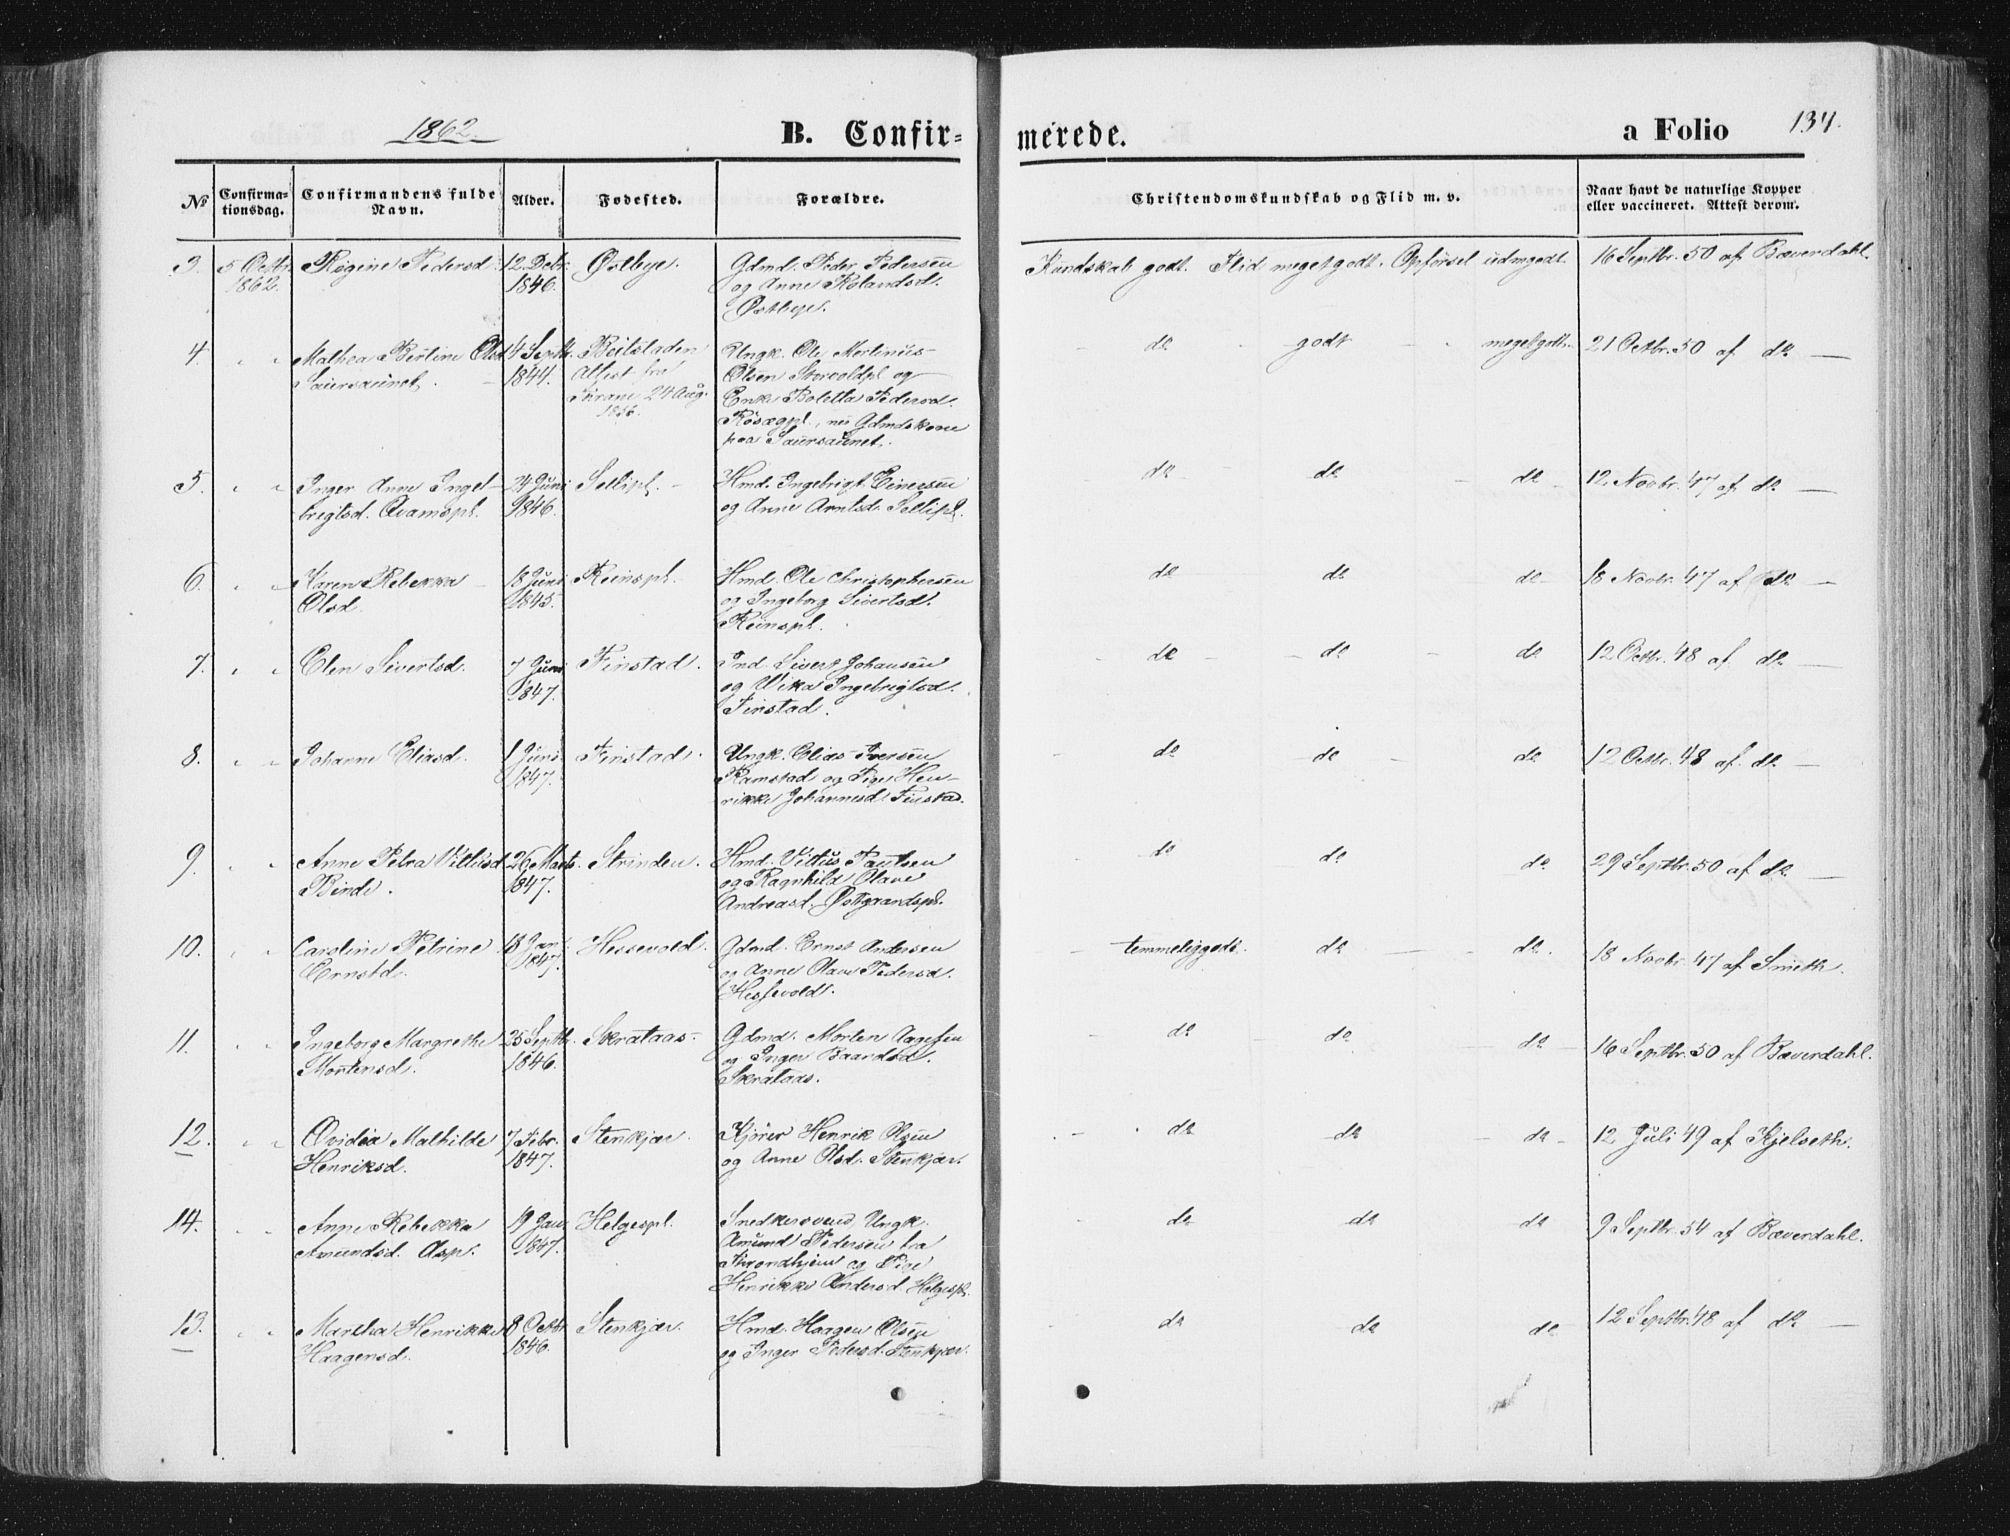 1862.
B. Confir-
merede.
a Folio
134.
No
Confirma-
tionsdag.
Confirmandens fulde
Navn.
Alder.
Fødested.
Forældre.
Christendomskundskab og Flid m. v.
Naar havt de naturlige Kopper
eller vaccineret. Attest derom.
3. 5 Octbr. Regine Pedersd. 12 Debr. Østbye. Gdmd. Peder Pedersen Kundskab godt. Flid meget godt. Opførsel udmgodt. 16 Septbr. 50 af Bæverdahl.
1862. 1846. og Anne Rolandsd.
Østbye.
4. " " Mathea Bertine Olsd. 14 Septbr. Beitstaden Ungk. Ole Martinus do godt megetgodt. 21 Octbr. 50 af do
Saursaunet. 1844. Attest fra Olsen Storvoldpl og
24 Aug. Enke Boletta Pedersd.
1856. nu Gdmdskone
paa Saursaunet.
5. " " Inger Anne Ingel- 24 Juni Sellipl. Hmd. Ingebrigt Einersen do do do 12 Novbr. 47 af do
brigtsd. Qvamspl. 1846. og Anne Arntsd. Sellipl.
6. " " Karen Rebekka 18 Juni Reinspl. Hmd. Ole Christophersen do do do 18 Novbr. 47 af do
Olsd. 1845. og Ingeborg Sivertsd.
Reinspl.
7. " " Elen Sivertsd. 7 Juni Finstad. Ind. Sivert Johansen do do do 12 Octbr. 48 af do
1847. og Vika Ingebrigtsd.
Finstad.
8. " " Johanne Eliasd. 1 Juni Finstad. Ungk. Elias Iversen do do do 12 Octbr. 48 af do
1847. Ramstad og Pige Hen-
rikke Johannesd. Finstad.
9. " " Anne Petra Vittusd. 26 Marts Strinden. Hmd. Vittus Paulsen do do do 29 Septbr. 50 af do
Binde. 1847. og Ragnhild Olave
Andreasd. Østgaardspl.
10. " " Caroline Petrine 13 Jan. Hessevold. Gdmd. Ernst Andersen temmeliggodt. do do. 18 Novbr. 47 af Smeth.
Ernstd. 1847. og Anne Olava Pedersd.
Hessevold.
11. " " Ingeborg Margrethe 25 Septbr. Skrataas. Gdmd. Morten Aagesen do do do 16 Septbr. 50 af Bæverdahl.
Mortensd. 1846. og Inger Baardsd.
Skrataas.
12. " " Ovidia Mathilde 7 Febr. Stenkjær. Kjører Henrik Olsen do do do 12 Juli 49 af Kjelseth.
Henriksd. 1847. og Anne Olsd. Stenkjær.
14. " " Anne Rebekka 19 Jan. Helgespl. Snedkersvend, Ungk. do do do 9 Septbr. 54 af Bæverdahl.
Amundsd. Asp. 1847. Amund Pedersen fra
Throndhjem og Pige
Henrikke Andersd. Helgespl.
13. " " Martha Henrikke 8 Octbr. Stenkjær. Hmd. Haagen Olsen do do do 12 Septbr. 48 af do
Haagensd. 1846. og Inger Pedersd. Stenkjær.